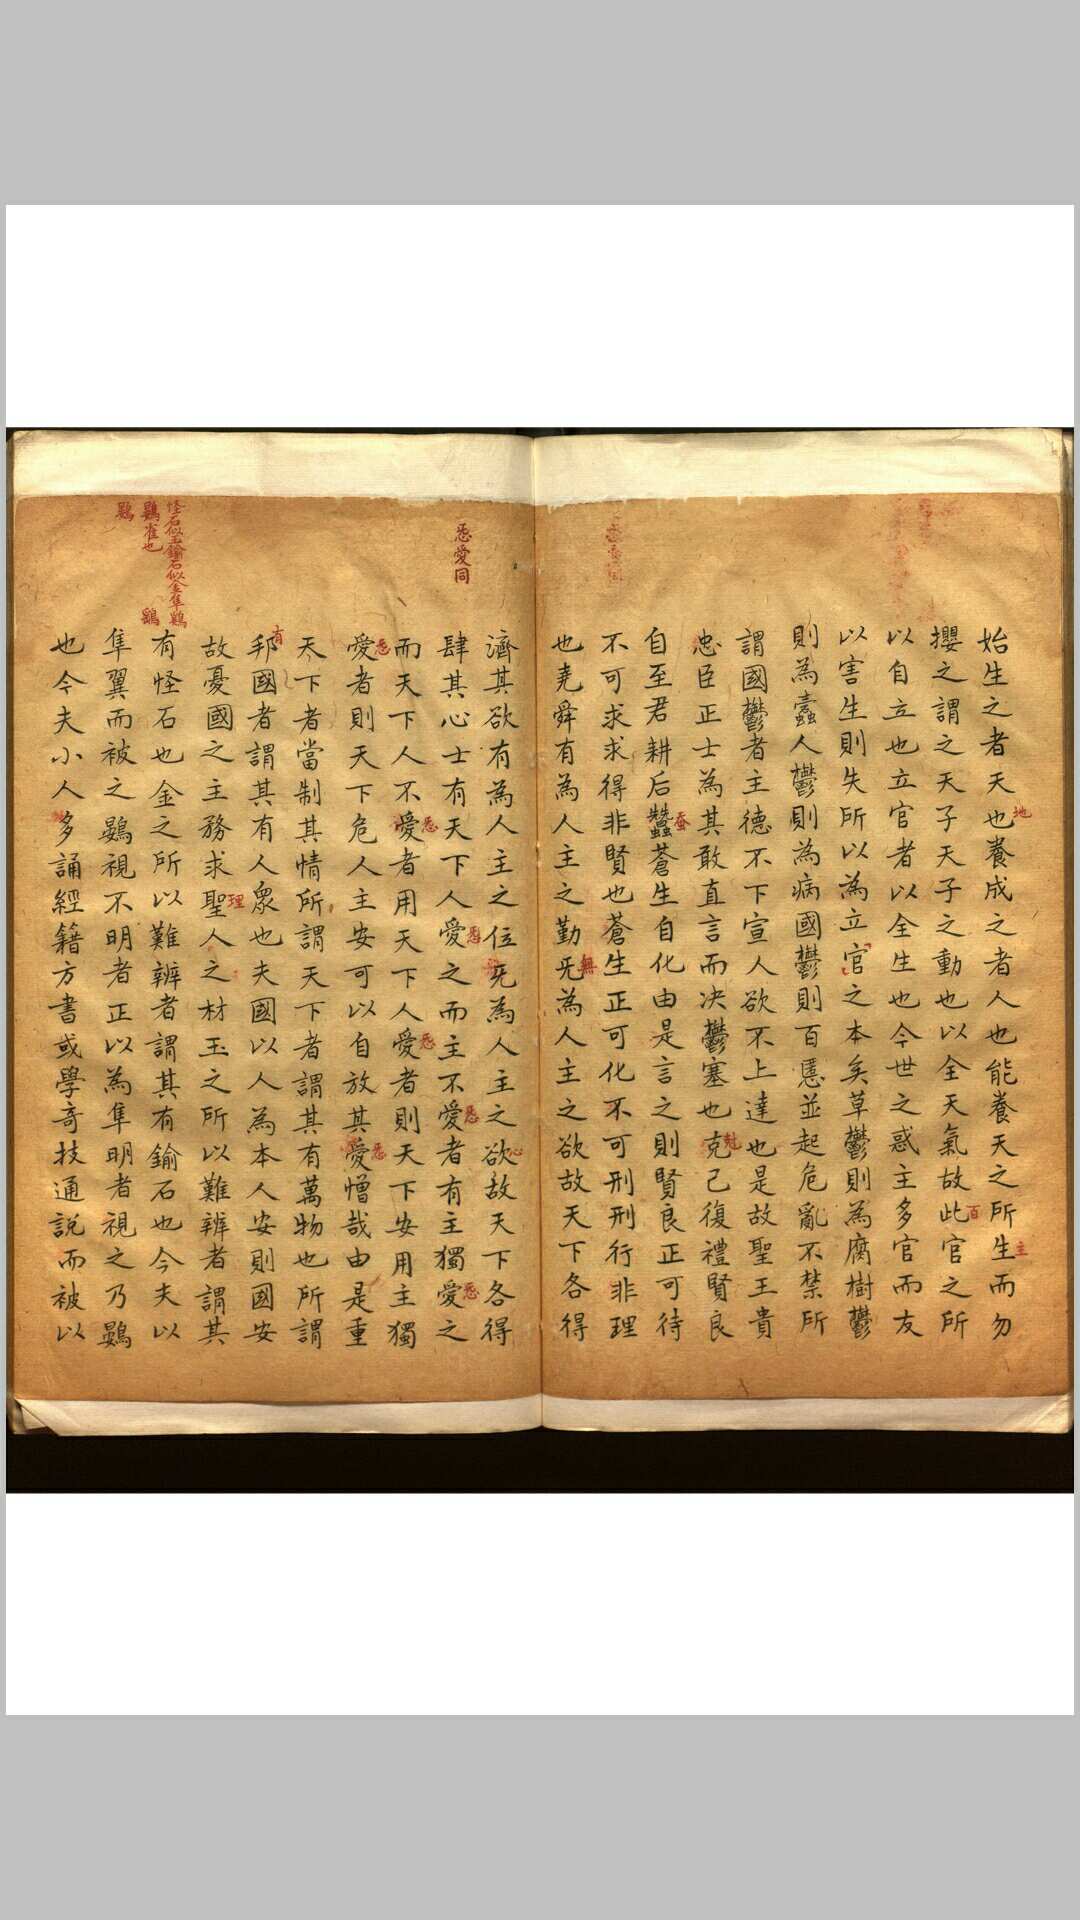 始生之者天也養成之者人也能養天之所生而勿
攖之謂之天子天子之動也以全天氣故此官之所
以自立也立官者以全生也今世之惑主多官而友
以害生則失所以為立官之本矣草鬱則為腐樹鬱
則為蠹人鬱則為病國鬱則百慝並起危亂不禁所
謂國鬱者主德不下宣人欲不上達也是故聖王貴
忠臣正士為其敢直言而决鬱塞也克己復禮賢良
自至君耕后蠶蒼生自化由是言之則賢良正可待
不可求求得非賢也蒼生正可化不可刑刑行非理
也堯舜有為人主之勤旡為人主之欲故天下各得
悉愛同
濟其欲有為人主之位旡為人主之欲故天下各得
肆其心士有天下人愛之而主不愛者有主獨愛之
而天下人不愛者用天下人愛者則天下安用主獨
愛者則天下危人主安可以自放其愛憎哉由是重
天下者當制其情所謂天下者謂其有萬物也所謂
邦國者謂其有人衆也夫國以人為本人安則國安
故憂國之主務求聖人之材玉之所以難辨者謂其
怪石似玉鍮石似金隼鷃
有怪石也金之所以難辨者謂其有鍮石也今夫以
鷃雀也
隼翼而被之鷃視不明者正以為隼明者視之乃鷃
也今夫小人多誦經籍方書或學奇技通說而被以
地
主
百
蚕
尅
無
心
悉
悉
悉
悉
悉
悉
悉
有
理